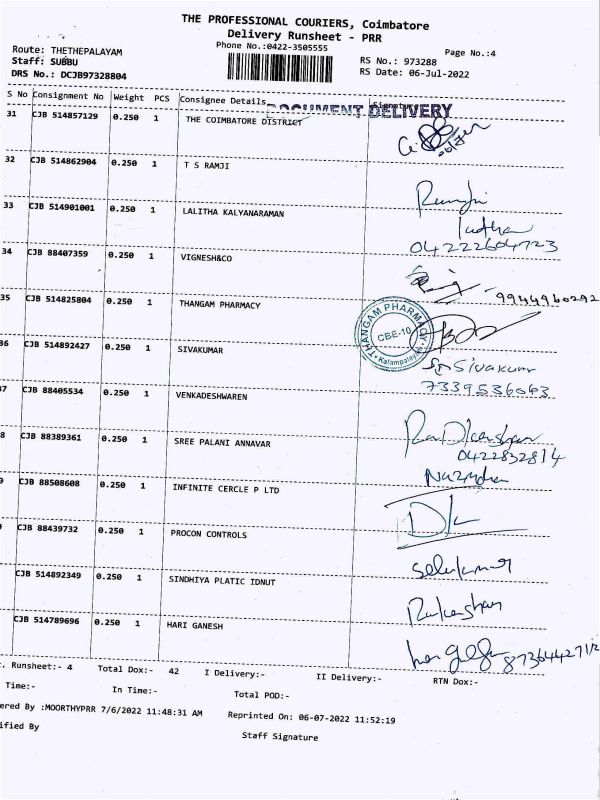 THE PROFESSIONAL COURIERS, Coimbatore
Delivery Runsheet - PRR
Phone No.:0422-3505555
Page No.:4
Route: THETHEPALAYAM
Staff: SUBBU
DRS No.: DCJB97328804
RS No.: 973288
RS Date: 06-Jul-2022
S No Consignment No Weight PCS Consignee Details Signature
DOCUMENT DELIVERY
31 CJB 514857129 0.250 1 THE COIMBATORE DISTRICT
32 CJB 514862904 0.250 1 T S RAMJI
Ramji
33 CJB 514901001 0.250 1 LALITHA KALYANARAMAN
04222604723
34 CJB 88407359 0.250 1 VIGNESH&CO
9944960292
35 CJB 514825804 0.250 1 THANGAM PHARMACY
THANGAM PHARMACY
CBE-10
Kalampalayam
36 CJB 514892427 0.250 1 SIVAKUMAR
Sivakumar
7339536063
7 CJB 88405534 0.250 1 VENKADESHWAREN
8 CJB 88389361 0.250 1 SREE PALANI ANNAVAR
0422832814
9 CJB 88508608 0.250 1 INFINITE CERCLE P LTD
CJB 88439732 0.250 1 PROCON CONTROLS
CJB 514892349 0.250 1 SINDHIYA PLATIC IDNUT
CJB 514789696 0.250 1 HARI GANESH
. Runsheet:- 4 Total Dox:- 42 I Delivery:- II Delivery:- RTN Dox:-
Time:- In Time:- Total POD:-
ered By :MOORTHYPRR 7/6/2022 11:48:31 AM Reprinted On: 06-07-2022 11:52:19
ified By Staff Signature